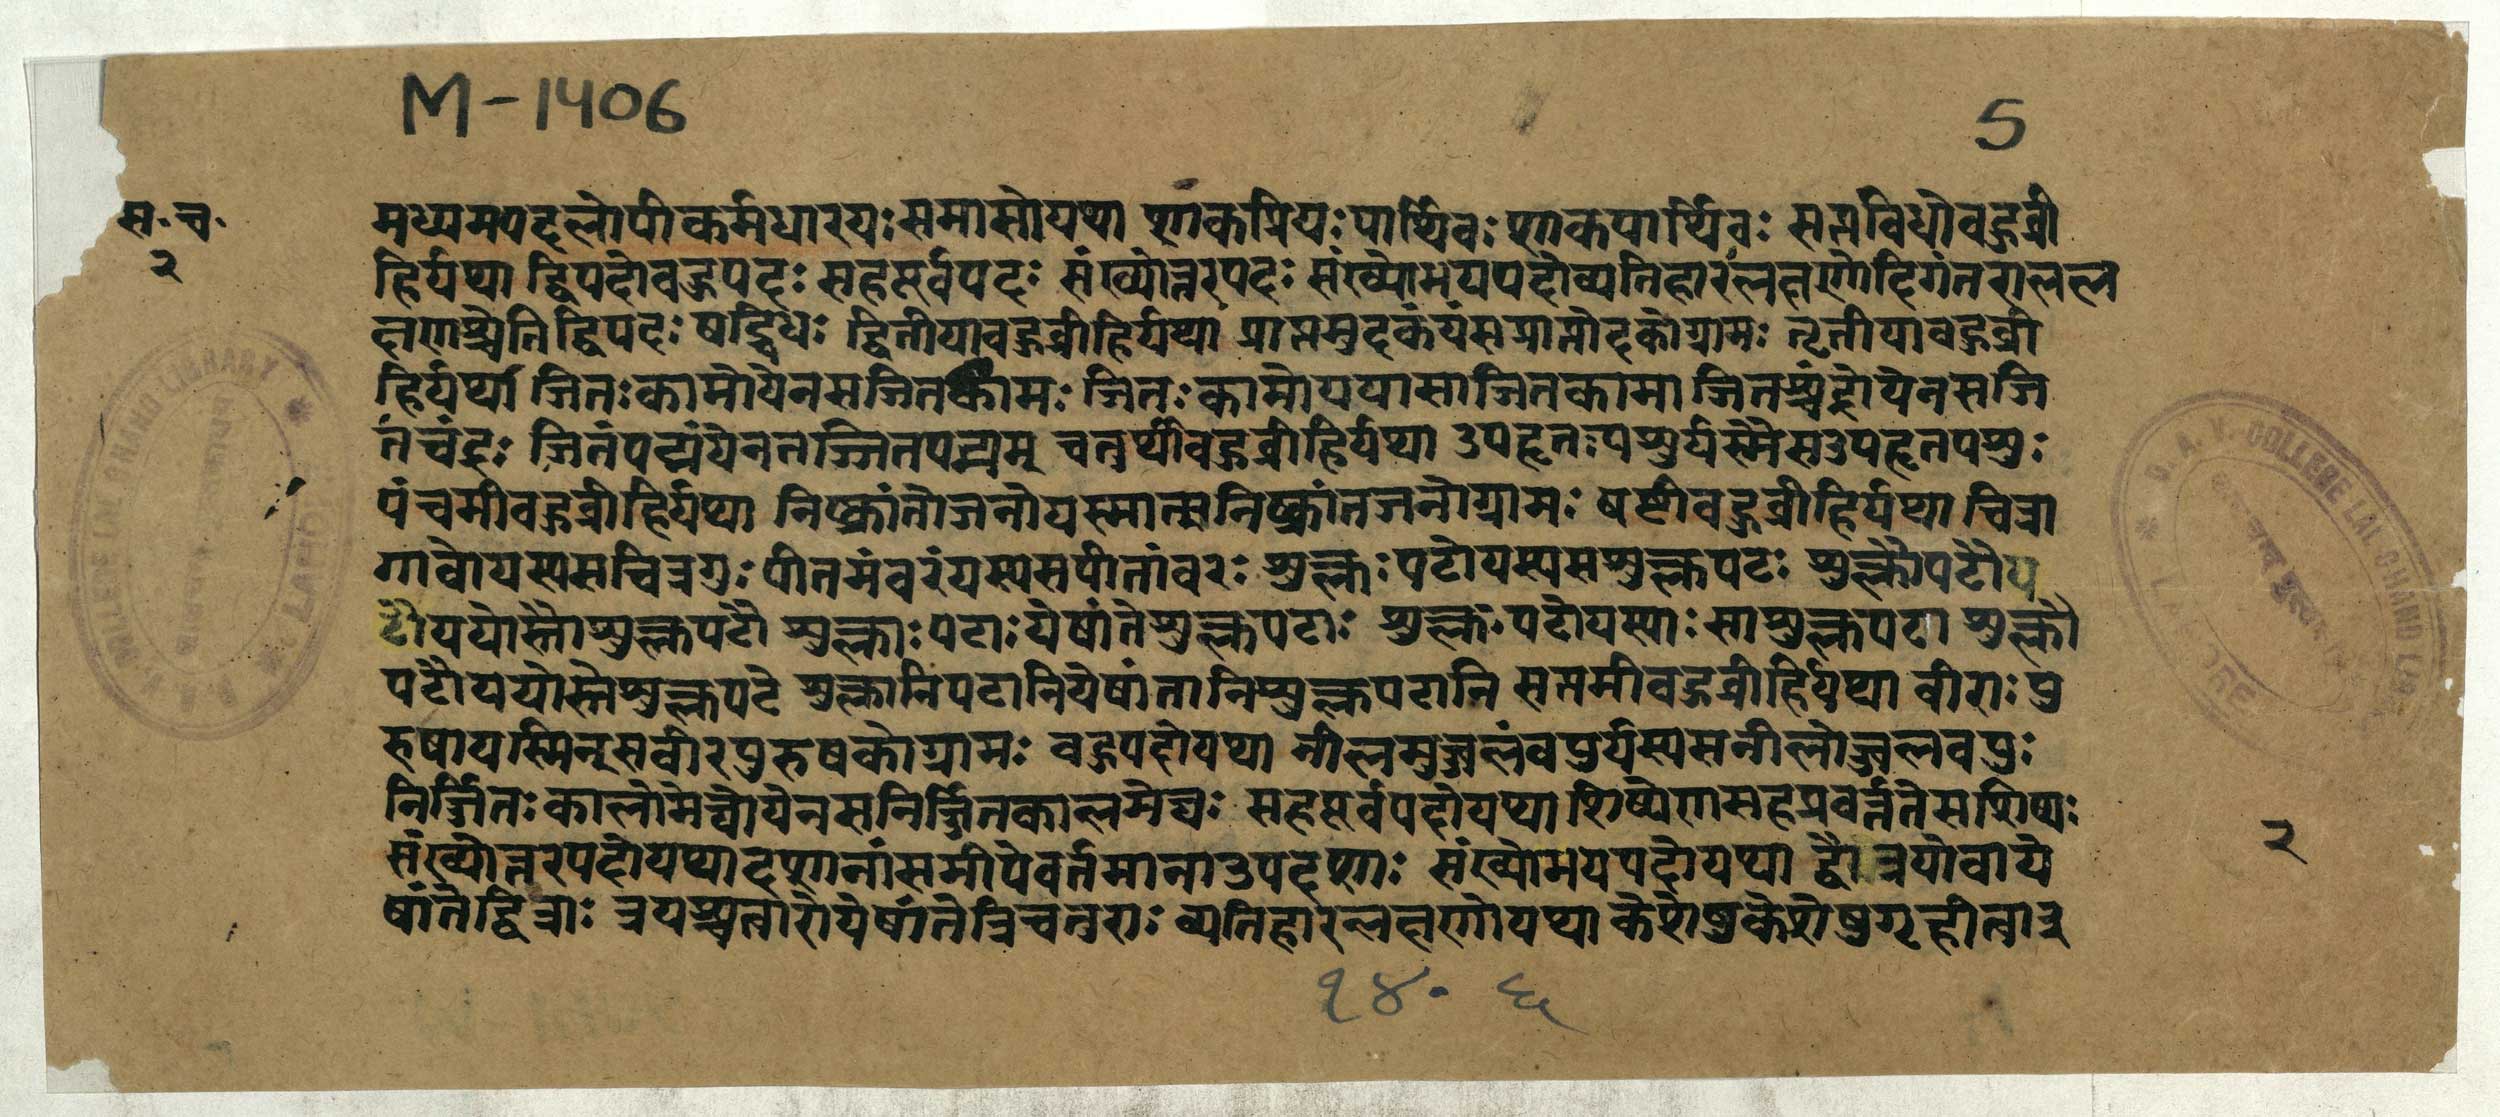 M-1406
5
स. च.
२
मध्यमपदलोपीकर्मधारयः समासोयथा शाकप्रियः पार्थिवः शाकपार्थिवः सप्तविधोवहुव्री
हिर्यथा द्विपदोवहुपदः सहपूर्वपदः संख्योत्तरपदः संख्योभयपदोव्यतिहारलक्षणोदिगंतराललल
क्षणश्चेतिद्विपदः षड्विधः द्वितीयावहुव्रीहिर्यथा प्राप्तमुदकंयंसप्राप्तोदकोग्रामः तृतीयावहुव्री
हिर्यथा जितःकामोयेनसजितकामः जितःकामोययासाजितकामा जितश्चंद्रोयेनसजि
तचंद्रः जितंपद्मंयेनतज्जितपद्मम् चतुर्थीवहुव्रीहिर्यथा उपहृतःपशुर्यस्मैसउपहृतपशुः
पंचमीवहुव्रीहिर्यथा निष्क्रांतोजनोयस्मात्सनिष्क्रांतजनोग्रामः षष्टीवहुव्रीहिर्यथा चित्रा
गावोयस्यसचित्रगुः पीतमंवरंयस्यसपीतांवरः शुक्लःपटोयस्यसशुक्लपटः शुक्लौपटौप
टौययोस्तौशुक्लपटौ शुक्लाःपटाःयेषांतेशुक्लपटाः शुक्लःपटोयस्याःसाशुक्लपटा शुक्लौ
पटौययोस्तेशुक्लपटे शुक्लानिपटानियेषांतानिशुक्लपटानि सप्तमीवहुव्रीहिर्यथा वीराःपु
रुषायस्मिन्सवीरपुरुषकोग्रामः वहुपदोयथा नीलमुज्जलंवपुर्यस्यसनीलोज्जलवपुः
निर्ज्जितःकालोमेघोयेनसनिर्ज्जितकालमेघः सहपूर्वपदोयथा शिष्येणसहप्रवर्त्ततेसशिष्यः
संख्योत्तरपदोयथादशानांसमीपेवर्तमानाउपदशाः संख्योभयपदोयथा द्वौत्रयोवाये
षांतेद्वित्राः त्रयश्चत्वारोयेषांतेत्रिचतुराः व्यतिहारलक्षणोयथा केशेषुकेशेषुगृहीत्वाइ
२
१४. ६
D. A. V. COLLEGE LAL CHAND LIBRARY
LAHORE